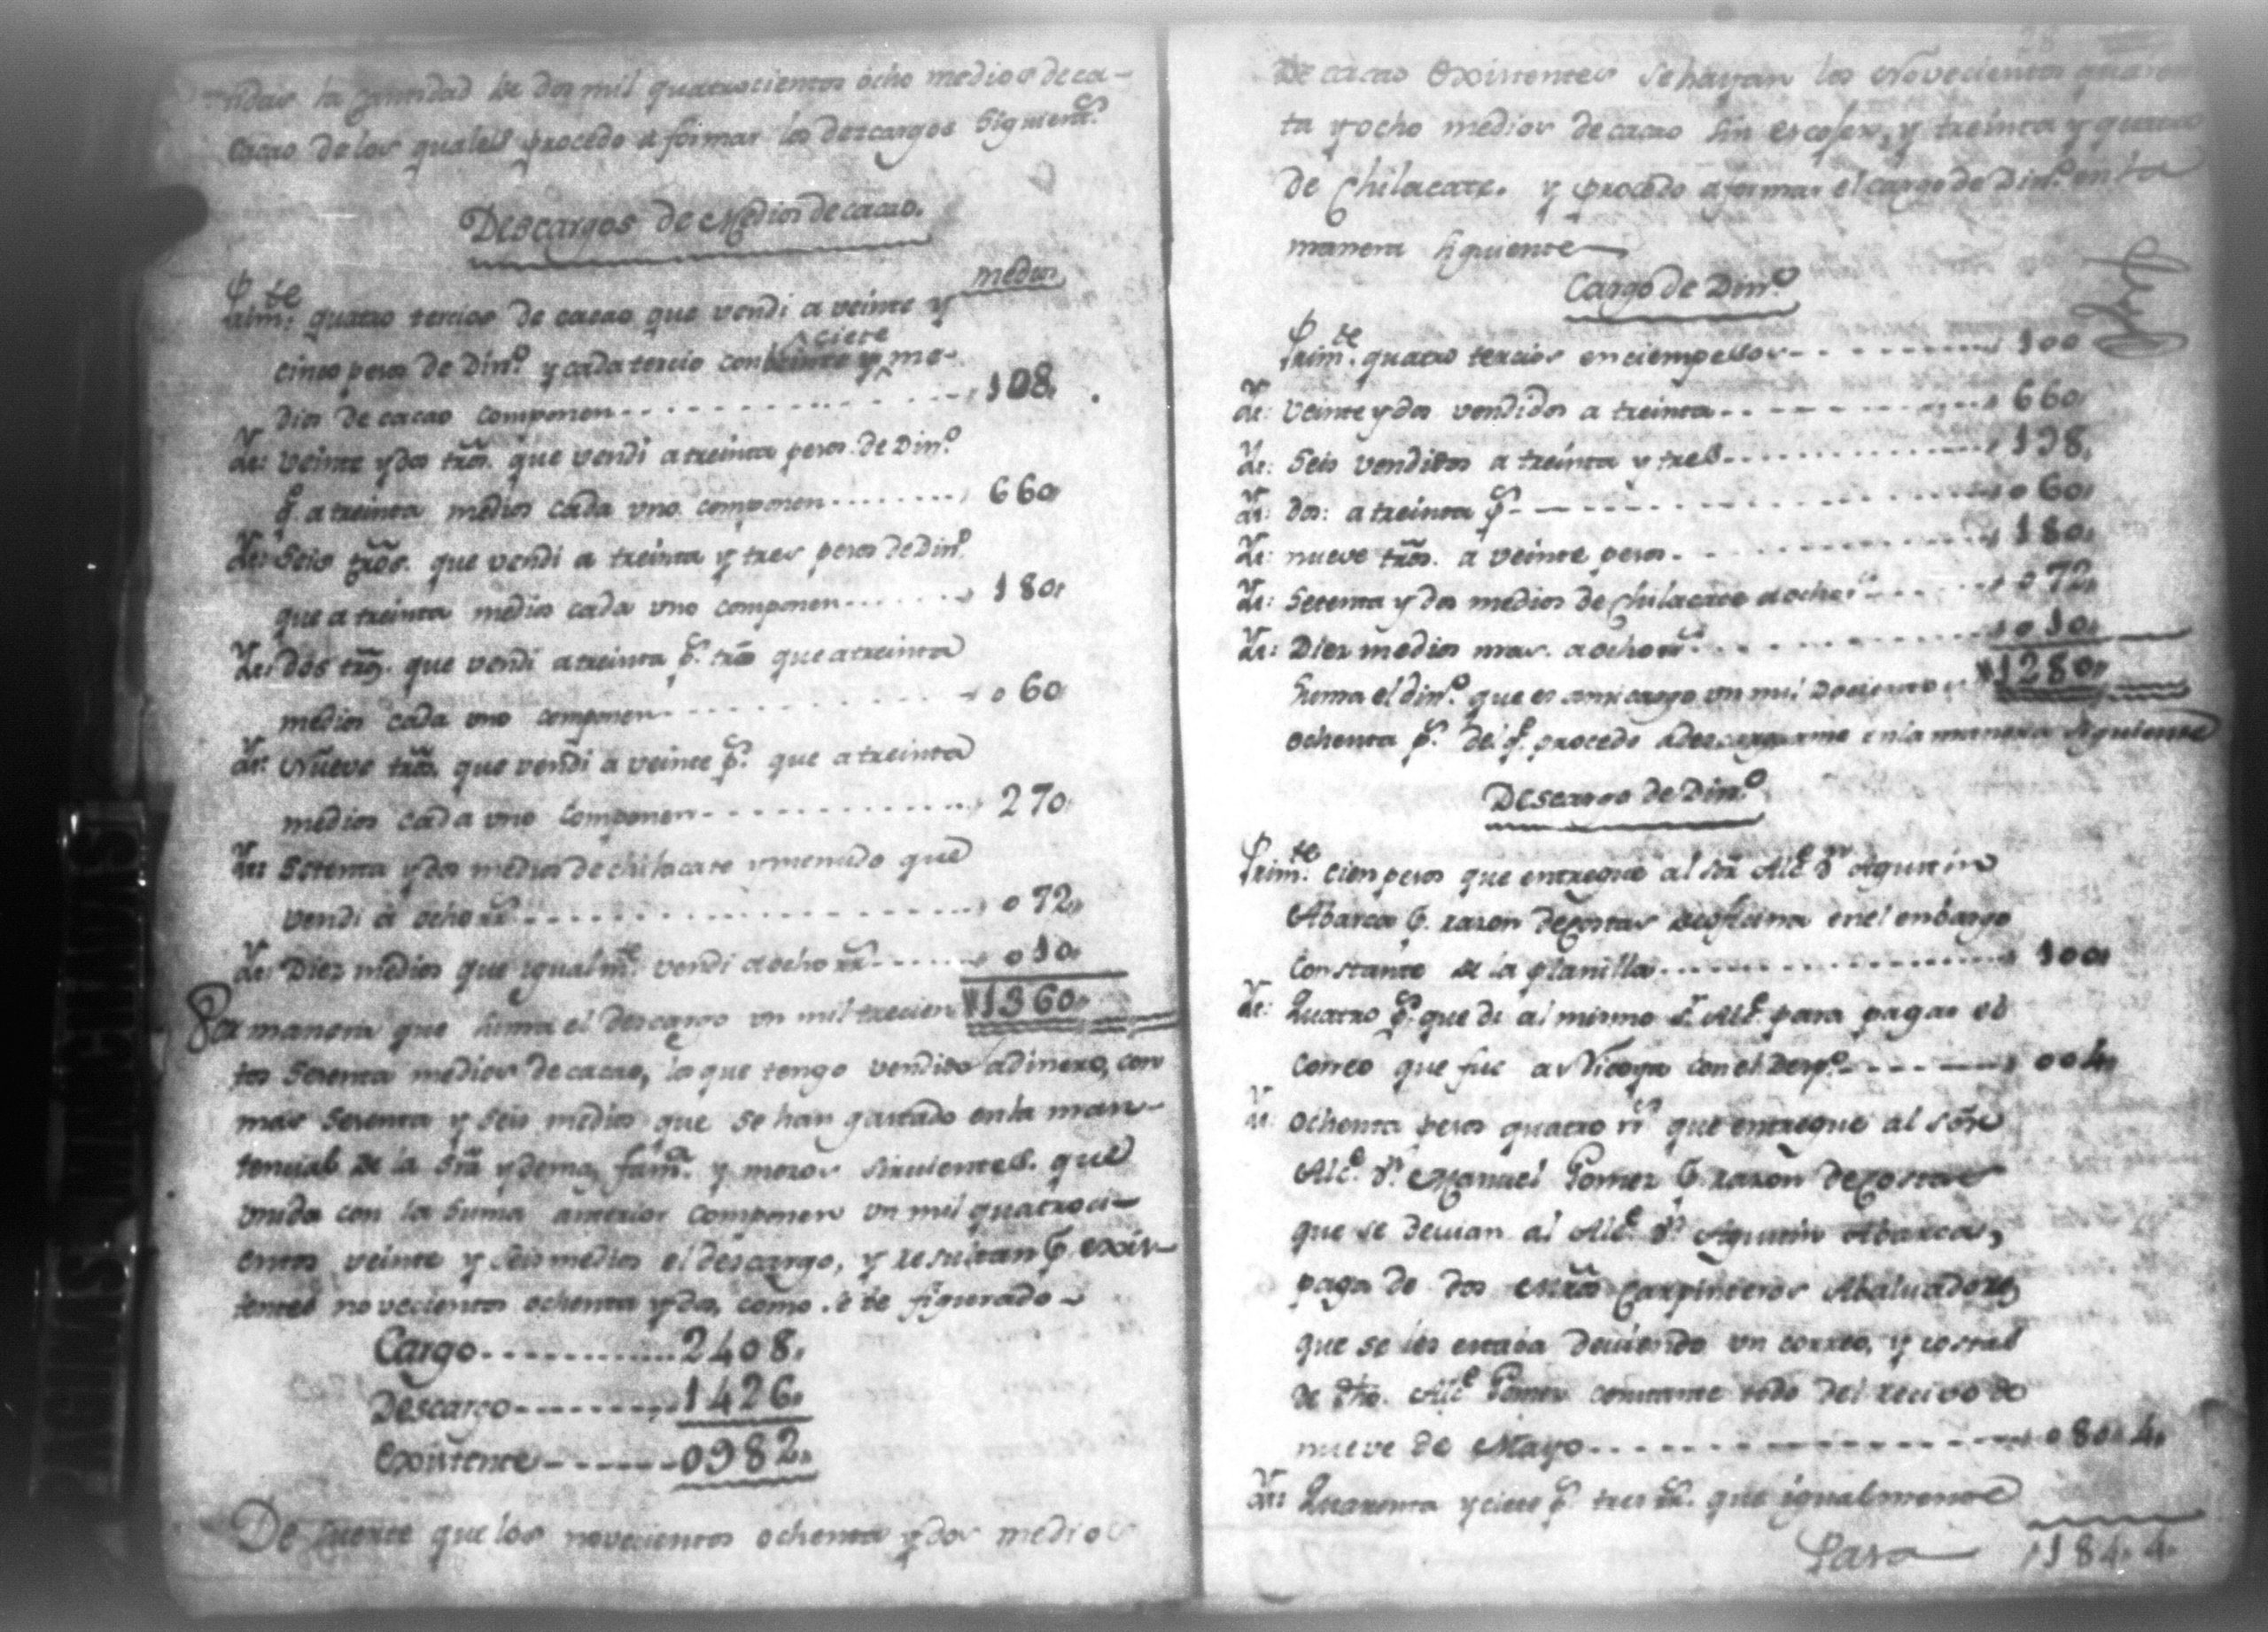 la cantidad de dos mil quatrocientos ocho medios de ca-
cao de los quales procedo a formar los descargos siguen.s
Descargos de Medios de cacao.
medios
Prim.te quatro tercios de cacao que vendi a veinte y
cinco pesos de Din.o y cada tercio con ciete y me-
dios de cacao componen 108.
Yt. de: veinte y dos trõs. que vendi a treinta pesos de Din.o
q.e a treinta medios cada uno componen 660
Yt. de: Seis trõs. que vendi a treinta y tres pesos de din.o
que a treinta medios cada vno componen 180
Yt. de: dos trõs. que vendi a treinta p.s trõ que a treinta
medios cada vno componen 060
Yt. de: Nueve trõs. que vendi a veinte p.s que a treinta
medios cada vno componen 270
Yt. de: Setenta y dos medios de chilacate menudo que
vendi à ocho rr.s 072
Yt. de: Diez medios que igualm.te vendi a ocho rr.s 010
Por manera que suma el descargo vn mil trecien 1360
tos sesenta medios de cacao, lo que tengo vendido a dinero, con
mas sesenta y seis medios que se han gastado en la man-
tencion de la Srã y demas fam.a y mozos sirvientes. que
vnida con la suma anterior componen vn mil quatroci-
entos veinte y seis medios el descargo, y resultan p.r exis-
tentes novecientos ochenta y dos, como se be figurado
Cargo 2408.
Descargo 1426.
Existente 0982.
De suerte que los novecientos ochenta y dos medios
28
De cacao Existentes se hayan los Novecientos quaren
ta y ocho medios de cacao sin escoser, y treinta y quatro
de Chilacate. y procedo a formar el cargo de Din.o en la
manera siguiente
Cargo de Din.o
Prim.te quatro tercios en cien pessos 100
Yt. de: veinte y dos vendidos a treinta 660
Yt. de: Seis vendidos a treinta y tres 198.
Yt. de: dos: a treinta p.s 060
Yt. de: nueve trõs. a veinte pesos 180.
Yt. de: Setenta y dos medios de Chilacate a ocho rr.s 072.
Yt. de: Diez medios mas. a ocho rr.s 010.
Suma el din.o que es a mi cargo vn mil docientos 1280
ochenta p.s del q.e procedo a descargarme en la manera siguiente
Descargo de Din.o
Prim.te cien pesos que entregue al Sõr Alc.e d.n Agustin
Abarca p.r razon de costas de oficina en el enbargo
constante de la planilla 100
Yt. de: Quatro p.s que di al mismo S.r Alc.e para pagar el
correo que fue a Nicoya con el Desp.o 004
Yt. de: ochenta pesos quatro rr.s que entregue al Sõr
Alc.e d.n Manuel Gomez p.r razon de costas
que se devian al Alc.e d.n Agustin Abarca,
paga de dos Mtrõs Carpinteros Abaluadores
que se les estava deviendo vn correo, y costas
de dho. Alc.e Gomez constante todo del recivo de
nueve de Mayo 080.4.
Yt. de: Quarenta y ciete p.s tres rr.s que igualmente
Pasa 184.4.